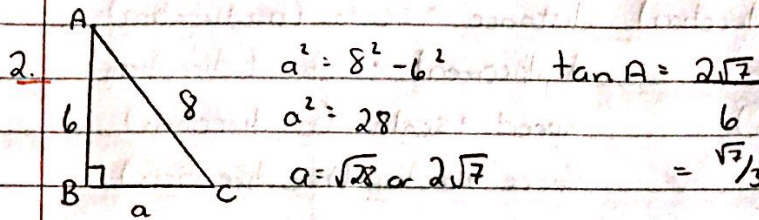 2.
A
6
8
B
C
a
a² = 8² - 6²
a² = 28
a = √28 or 2√7
tan A = 2√7
6
= √7/3